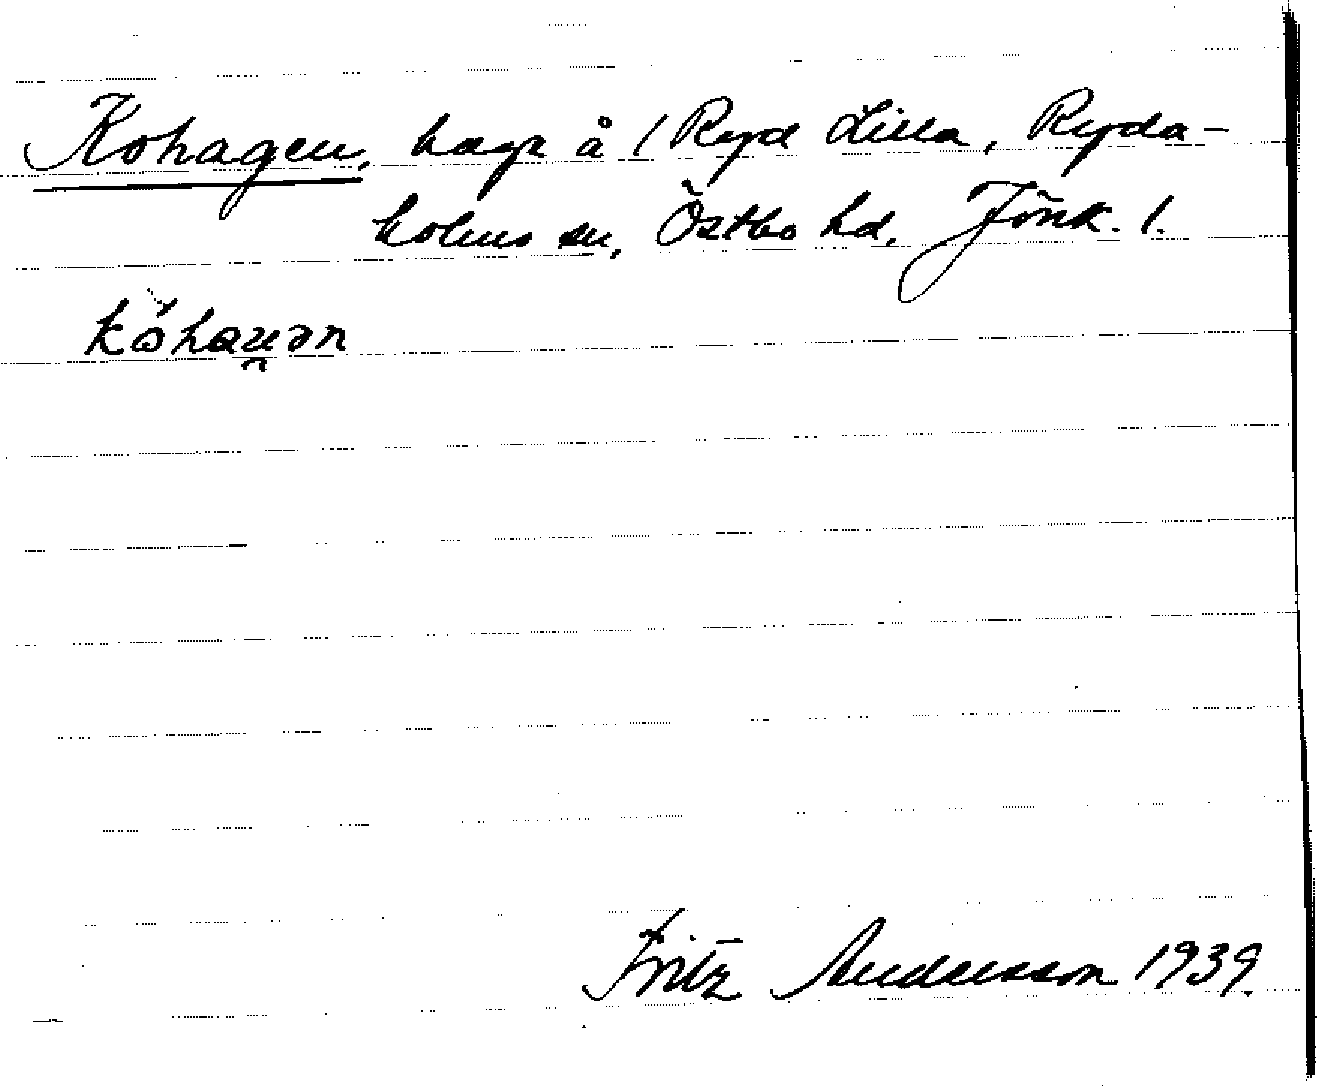 Kohagen, hage å 1 Ryd Lilla, Ryda-
holms sn, Östbo hd, Jönk. l.
Fritz Andersson 1939.